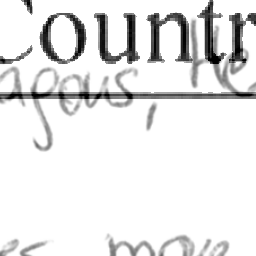 Countr
agous, He
es more